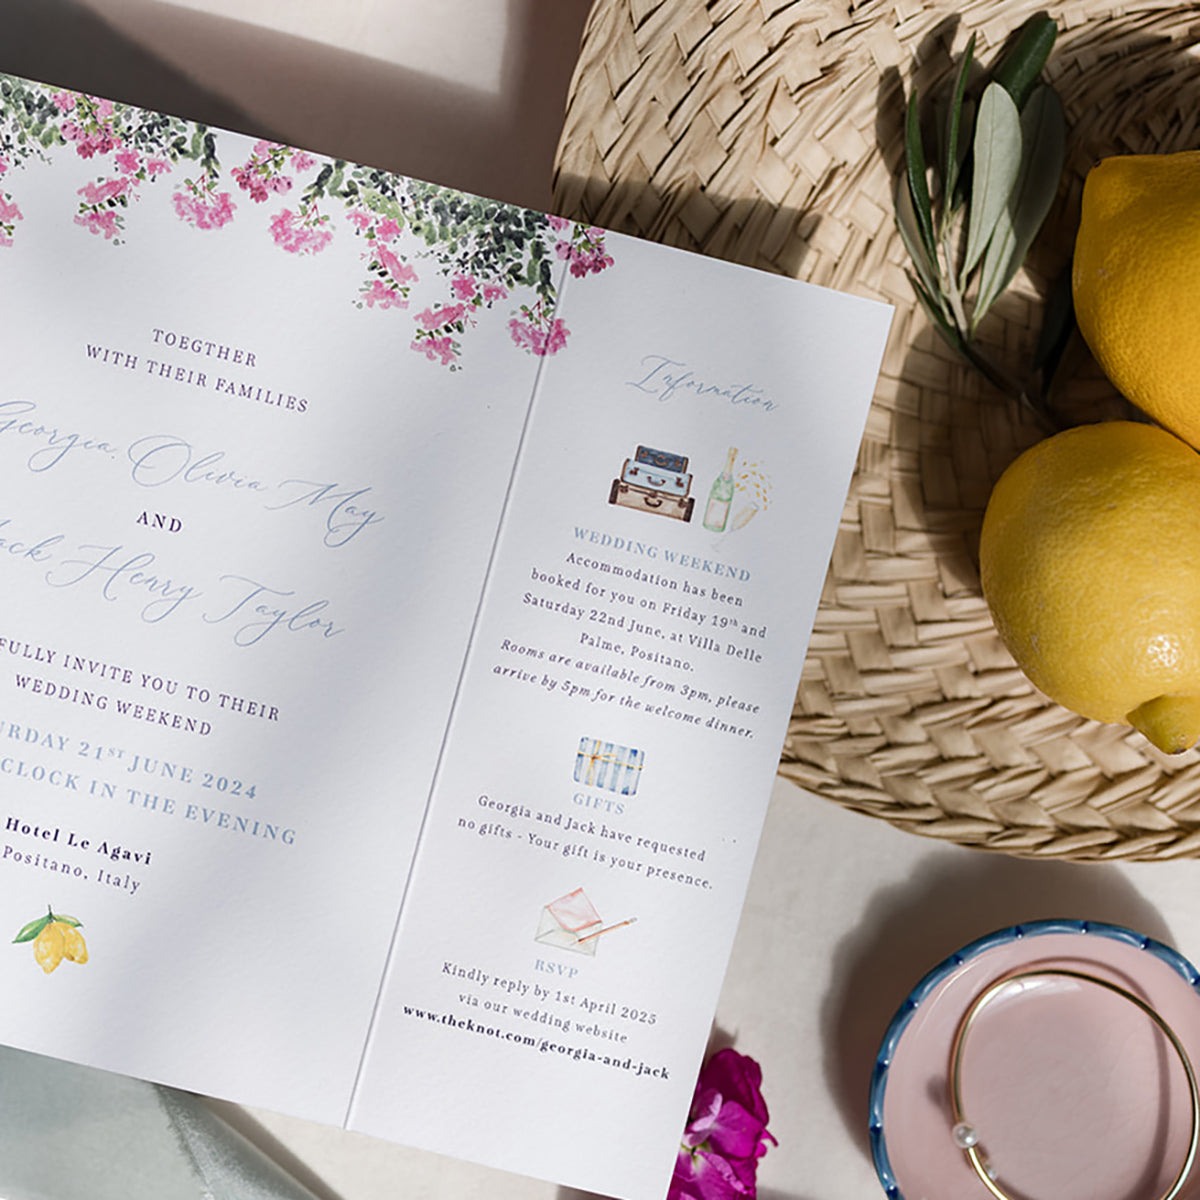 TOEGTHER
WITH THEIR FAMILIES
Georgia Olivia May
AND
Jack Henry Taylor
FULLY INVITE YOU TO THEIR
WEDDING WEEKEND
URDAY 21ST JUNE 2024
CLOCK IN THE EVENING
Hotel Le Agavi
Positano, Italy
Information
WEDDING WEEKEND
Accommodation has been
booked for you on Friday 19th and
Saturday 22nd June, at Villa Delle
Palme, Positano.
Rooms are available from 3pm, please
arrive by 5pm for the welcome dinner.
GIFTS
Georgia and Jack have requested
no gifts - Your gift is your presence.
RSVP
Kindly reply by 1st April 2025
via our wedding website
www.theknot.com/georgia-and-jack